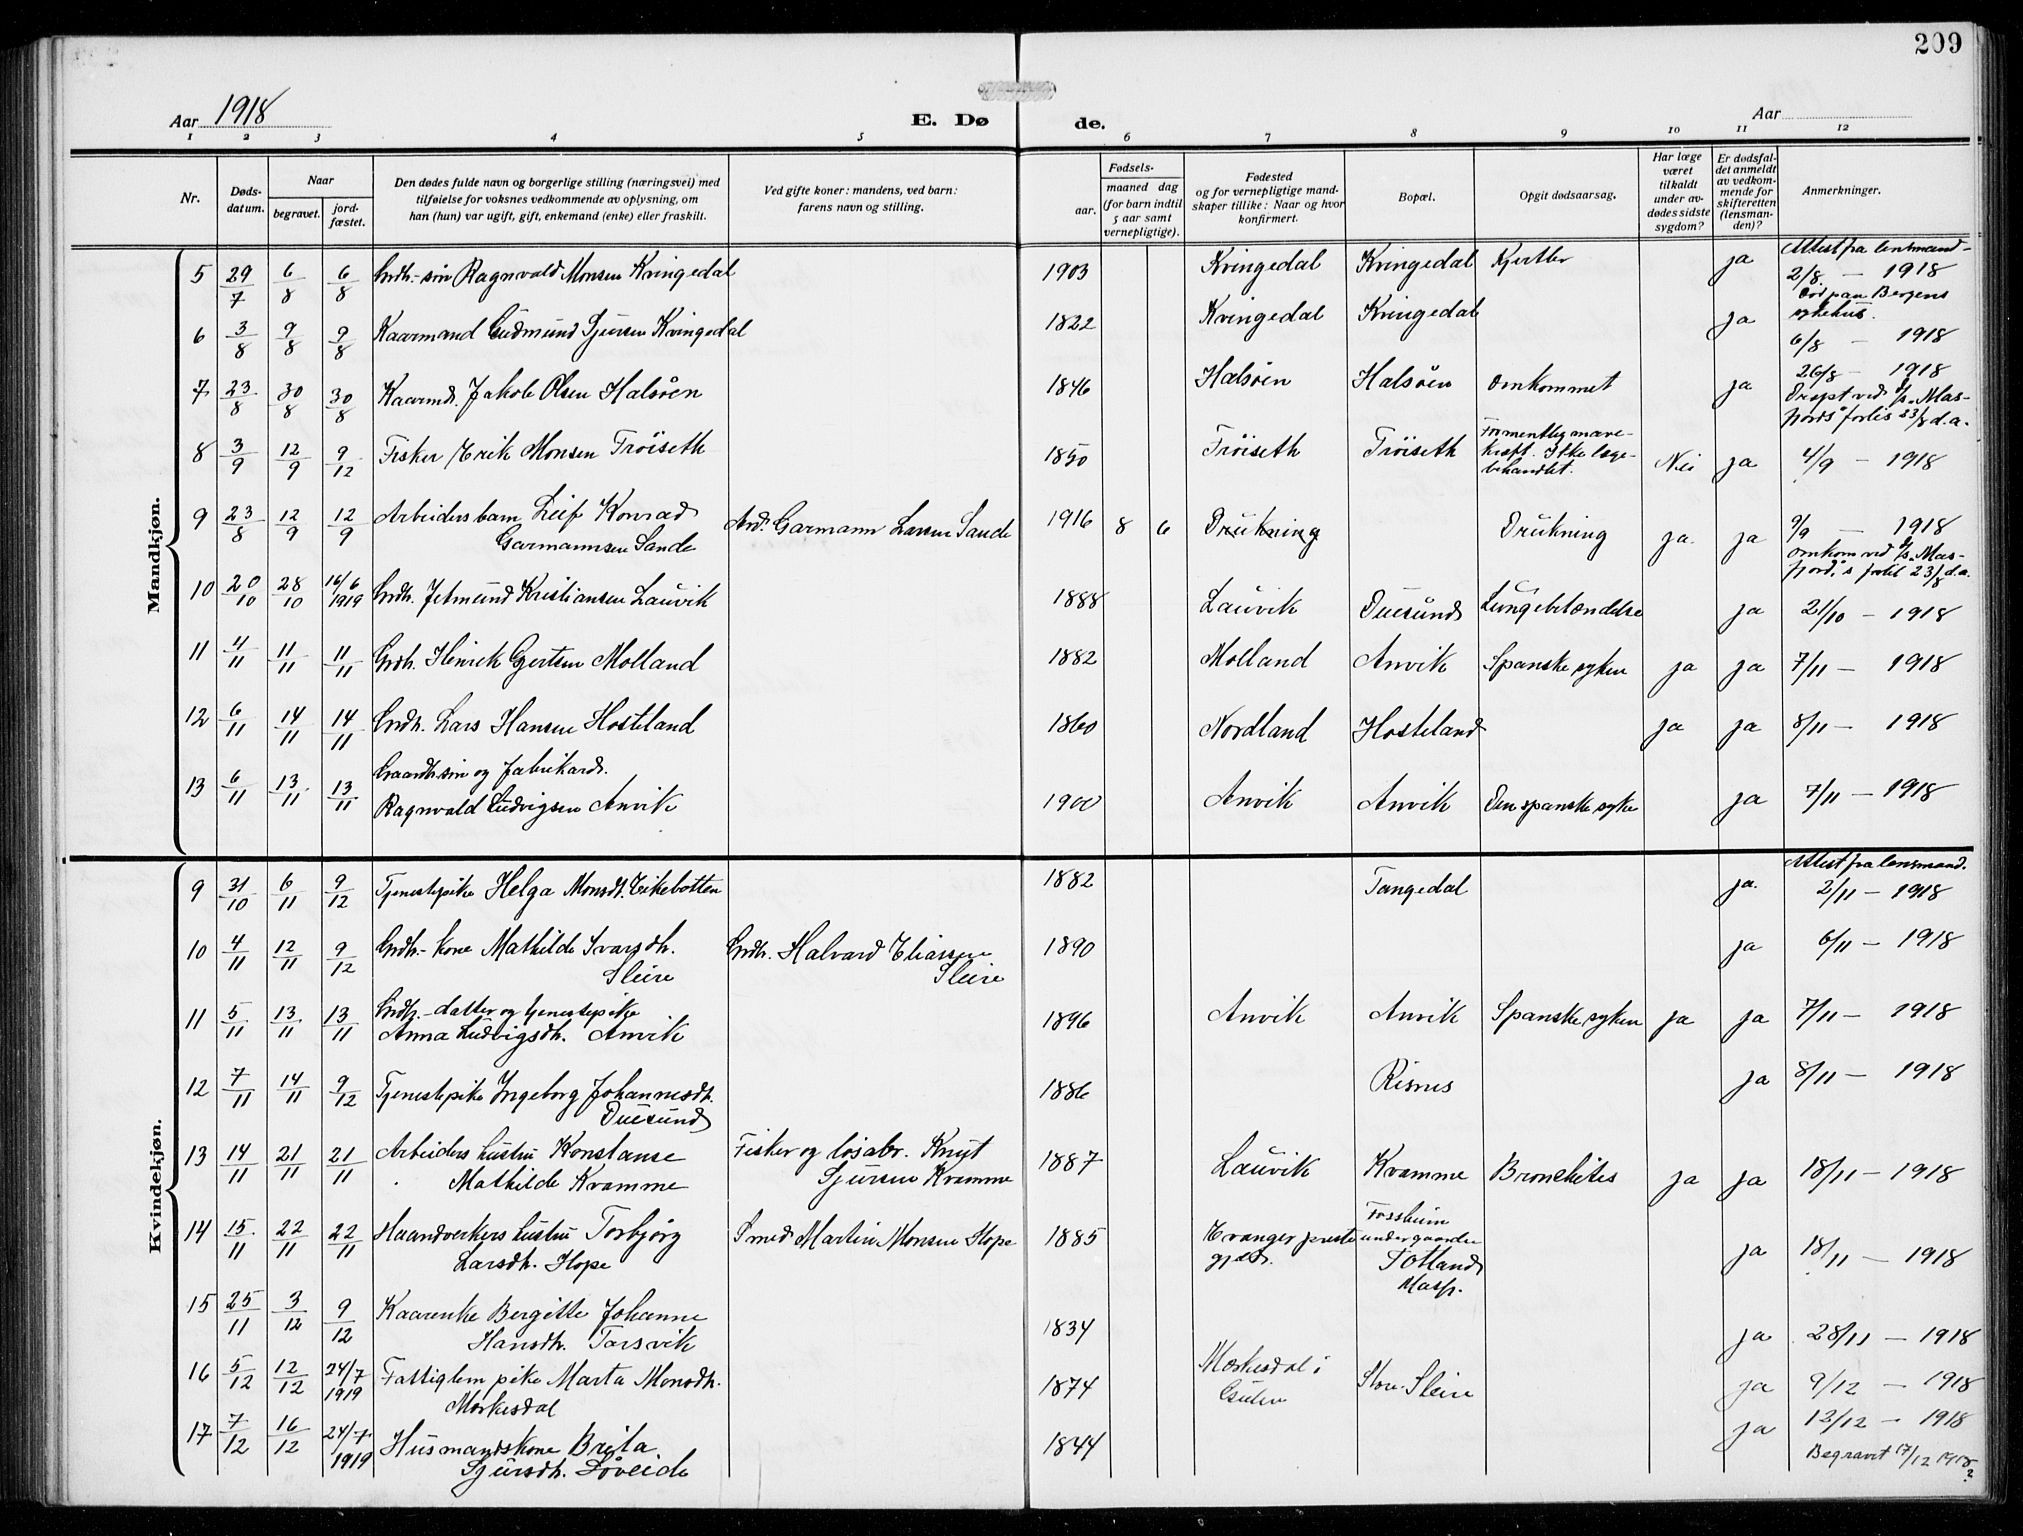 209
Aar 1918
E. Dø
de.
Aar
1 2 3 4 5 6 7 8 9 10 11 12
Nr.
Døds-
datum.
Naar
begravet.
jord-
fæstet.
Den dødes fulde navn og borgerlige stilling (næringsvei) med
tilføielse for voksnes vedkommende av oplysning, om
han (hun) var ugift, gift, enkemand (enke) eller fraskilt.
Ved gifte koner: mandens, ved barn:
farens navn og stilling.
Fødsels-
aar.
maaned dag
(for barn indtil
5 aar samt
vernepligtige).
Fødested
og for vernepligtige mand-
skaper tillike: Naar og hvor
konfirmert.
Bopæl.
Opgit dødsaarsag.
Har læge
været
tilkaldt
under av-
dødes sidste
sygdom?
Er dødsfal-
det anmeldt
av vedkom-
mende for
skifteretten
(lensman-
den)?
Anmerkninger.
Mandkjøn.
5 29/7 6/8 6/8 Grdh.-søn Ragnvald Monsen Kvingedal 1903 Kvingedal Kvingedal Kjertler ja Attest fra lensmand-
2/8 - 1918
Død paa Bergens
sykehus.
6 3/8 9/8 9/8 Kaarmand Gudmund Sjursen Kvingedal 1822 Kvingedal Kvingedal ja 6/8 - 1918
7 23/8 30/8 30/8 Kaarmd. Jakob Olsen Halsøen 1846 Halsøen Halsøen Omkommet ja 26/8 - 1918
Dræpt ved d/s. "Mas-
fjords" forlis 23/8 d.a.
8 3/9 12/9 9/12 Fisker Erik Monsen Frøiseth 1850 Frøiseth Frøiseth Formentlig mave-
kræft. Ikke læge-
behandlet. Nei ja 4/9 - 1918
9 23/8 12/9 12/9 Arbeiders barn Leif Konrad
Garmannsen Sande Arb. Garmann Larsen Sande 1916 8 6 Drukning Drukning ja. ja 9/9 - 1918
omkom ved d/s. "Mas-
fjord."s forlis 23/8 d.a.
10 20/10 28/10 16/6 1919 Grdh. Jetmund Kristiansen Lauvik 1888 Lauvik Duesund Lungebetændelse ja 21/10 - 1918
11 4/11 11/11 11/11 Grdh. Henrik Gjertsen Molland 1882 Molland Anvik Spanske syken ja ja 7/11 - 1918
12 6/11 14/11 14/11 Grdh. Lars Hansen Hosteland 1860 Nordland Hosteland ja ja 8/11 - 1918
13 6/11 13/11 13/11 Gaardh.søn og fabrikarb.
Ragnvald Ludvigsen Anvik 1900 Anvik Anvik Den spanske syke ja 7/11 - 1918
Kvindekjøn.
9 31/10 6/11 9/12 Tjenestepike Helga Monsdt. Eikebotten 1882 Tangedal ja. Attest fra lensmand.
2/11 - 1918
10 4/11 12/11 9/12 Grdh.-kone Mathilde Ivarsdh.
Sleire Grdh. Halvard Eliassen
Sleire 1890 ja 6/11 - 1918
11 5/11 13/11 13/11 Grdh.-datter og tjenestepike
Anna Ludvigsdh. Anvik 1896 Anvik Anvik Spanske syken ja ja 7/11 - 1918
12 7/11 14/11 9/12 Tjenestepike Ingeborg Johannesdh.
Duesund 1886 Risnes ja 8/11 - 1918
13 14/11 21/11 21/11 Arbeiders hustru Konstanse
Mathilde Kvamme Fisker og løsabr. Knut
Sjursen Kvamme 1887 Lauvik Kvamme Bronchites ja ja 18/11 - 1918
14 15/11 22/11 22/11 Haandverkers hustru Torbjørg
Larsdh. Hope Smed Martin Monsen Hope 1885 Evanger preste
gjeld. Fossheim
under gaarden
Totland
Masfj. ja 18/11 - 1918
15 25/11 3/12 9/12 Kaarenke Bergitte Johanne
Hansdh. Tarsvik 1834 ja 28/11 - 1918
16 5/12 12/12 24/7 1919 Fattiglem pike Marta Monsdh.
Mørkesdal 1874 Mørkesdal i
Gulen Stor-Sleire ja 9/12 - 1918
17 7/12 16/12 24/7 1919 Husmandskone Brita
Sjursdh. Løveide 1844 ja 12/12 - 1918
Begravet 17/12 1918
?